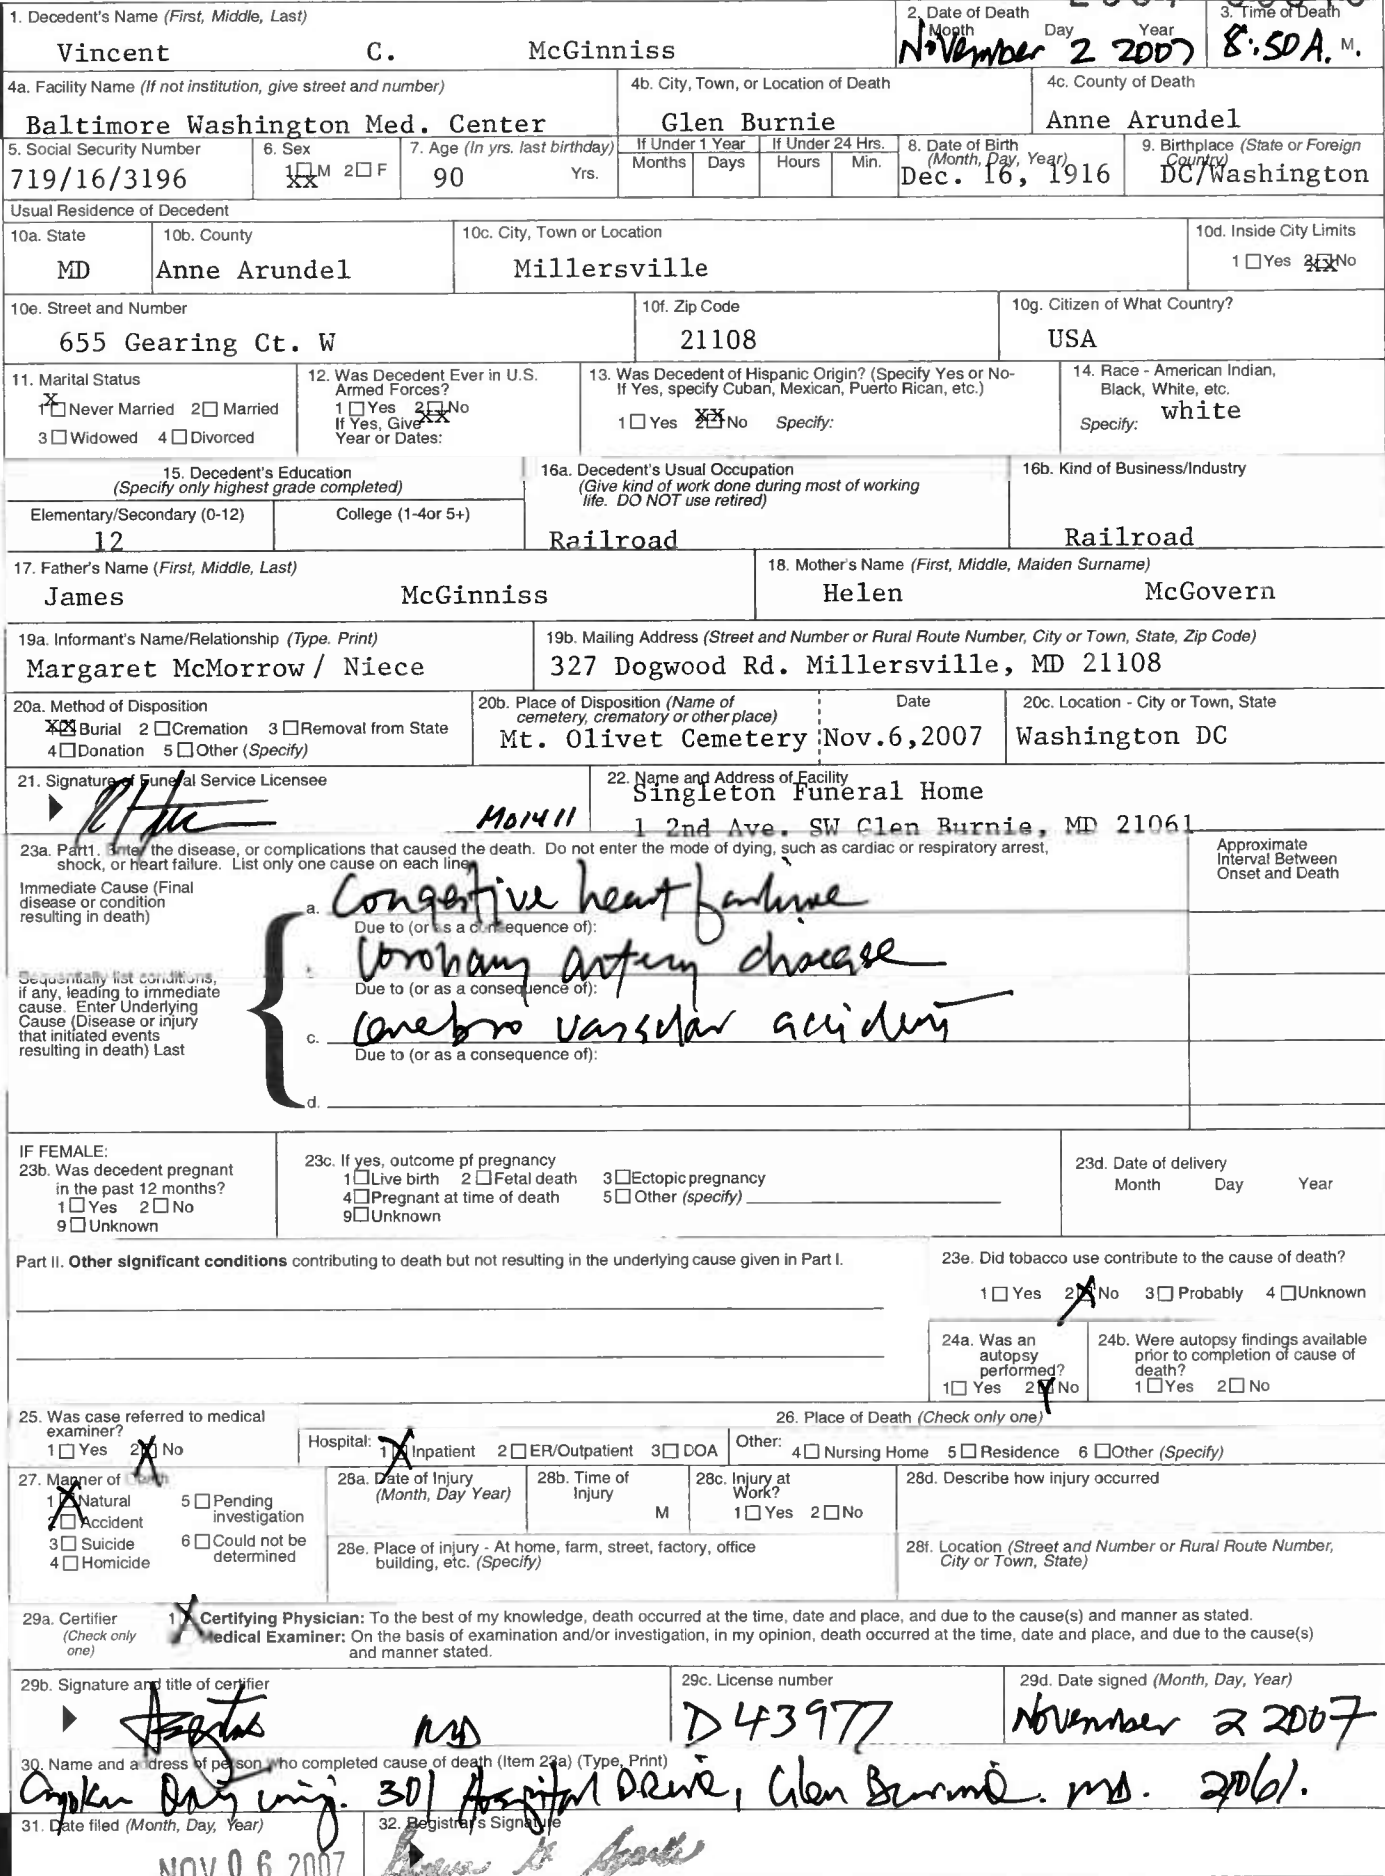 1. Decedent's Name (First, Middle, Last)
Vincent C. McGinniss
2. Date of Death
Month Day Year
November 2 2007
3. Time of Death
8:50 A. M.
4a. Facility Name (If not institution, give street and number)
Baltimore Washington Med. Center
4b. City, Town, or Location of Death
Glen Burnie
4c. County of Death
Anne Arundel
5. Social Security Number
719/16/3196
6. Sex
1☐M 2☐F
xx
7. Age (In yrs. last birthday)
90 Yrs.
If Under 1 Year
Months Days
If Under 24 Hrs.
Hours Min.
8. Date of Birth
(Month, Day, Year)
Dec. 16, 1916
9. Birthplace (State or Foreign
Country)
DC/Washington
Usual Residence of Decedent
10a. State
MD
10b. County
Anne Arundel
10c. City, Town or Location
Millersville
10d. Inside City Limits
1 ☐Yes 2☐No
xx
10e. Street and Number
655 Gearing Ct. W
10f. Zip Code
21108
10g. Citizen of What Country?
USA
11. Marital Status
X
1☐Never Married 2☐Married
3☐Widowed 4☐Divorced
12. Was Decedent Ever in U.S.
Armed Forces?
1☐Yes 2☐No
xx
If Yes, Give
Year or Dates:
13. Was Decedent of Hispanic Origin? (Specify Yes or No-
If Yes, specify Cuban, Mexican, Puerto Rican, etc.)
XX
1☐Yes 2☐No Specify:
14. Race - American Indian,
Black, White, etc.
Specify: white
15. Decedent's Education
(Specify only highest grade completed)
Elementary/Secondary (0-12)
12
College (1-4or 5+)
16a. Decedent's Usual Occupation
(Give kind of work done during most of working
life. DO NOT use retired)
Railroad
16b. Kind of Business/Industry
Railroad
17. Father's Name (First, Middle, Last)
James McGinniss
18. Mother's Name (First, Middle, Maiden Surname)
Helen McGovern
19a. Informant's Name/Relationship (Type. Print)
Margaret McMorrow / Niece
19b. Mailing Address (Street and Number or Rural Route Number, City or Town, State, Zip Code)
327 Dogwood Rd. Millersville, MD 21108
20a. Method of Disposition
XX Burial 2☐Cremation 3☐Removal from State
4☐Donation 5☐Other (Specify)
20b. Place of Disposition (Name of
cemetery, crematory or other place)
Mt. Olivet Cemetery
Date
Nov.6,2007
20c. Location - City or Town, State
Washington DC
21. Signature of Funeral Service Licensee
M01411
22. Name and Address of Facility
Singleton Funeral Home
1 2nd Ave. SW Glen Burnie, MD 21061
23a. Part1. Enter the disease, or complications that caused the death. Do not enter the mode of dying, such as cardiac or respiratory arrest,
shock, or heart failure. List only one cause on each line
Approximate
Interval Between
Onset and Death
Immediate Cause (Final
disease or condition
resulting in death)
a. Congestive heart failure
Due to (or as a consequence of):
Coronary artery disease
Due to (or as a consequence of):
c. cerebro vascular accident
Due to (or as a consequence of):
d.
Sequentially list conditions,
if any, leading to immediate
cause. Enter Underlying
Cause (Disease or injury
that initiated events
resulting in death) Last
IF FEMALE:
23b. Was decedent pregnant
in the past 12 months?
1☐Yes 2☐No
9☐Unknown
23c. If yes, outcome pf pregnancy
1☐Live birth 2☐Fetal death 3☐Ectopic pregnancy
4☐Pregnant at time of death 5☐Other (specify)
9☐Unknown
23d. Date of delivery
Month Day Year
Part II. Other significant conditions contributing to death but not resulting in the underlying cause given in Part I.
23e. Did tobacco use contribute to the cause of death?
1☐Yes 2☒No 3☐Probably 4☐Unknown
24a. Was an
autopsy
performed?
1☐Yes 2☒No
24b. Were autopsy findings available
prior to completion of cause of
death?
1☐Yes 2☐No
25. Was case referred to medical
examiner?
1☐Yes 2☒No
26. Place of Death (Check only one)
Hospital: 1☒Inpatient 2☐ER/Outpatient 3☐DOA
Other: 4☐Nursing Home 5☐Residence 6☐Other (Specify)
27. Manner of Death
1☒Natural 5☐Pending
investigation
2☐Accident
3☐Suicide 6☐Could not be
determined
4☐Homicide
28a. Date of Injury
(Month, Day Year)
28b. Time of
Injury
M
28c. Injury at
Work?
1☐Yes 2☐No
28d. Describe how injury occurred
28e. Place of injury - At home, farm, street, factory, office
building, etc. (Specify)
28f. Location (Street and Number or Rural Route Number,
City or Town, State)
29a. Certifier
(Check only
one)
1☒Certifying Physician: To the best of my knowledge, death occurred at the time, date and place, and due to the cause(s) and manner as stated.
Medical Examiner: On the basis of examination and/or investigation, in my opinion, death occurred at the time, date and place, and due to the cause(s)
and manner stated.
29b. Signature and title of certifier
MD
29c. License number
D43977
29d. Date signed (Month, Day, Year)
November 2 2007
30. Name and address of person who completed cause of death (Item 23a) (Type, Print)
301 Hospital Drive, Glen Burnie. MD. 21061.
31. Date filed (Month, Day, Year)
NOV 06 2007
32. Registrar's Signature